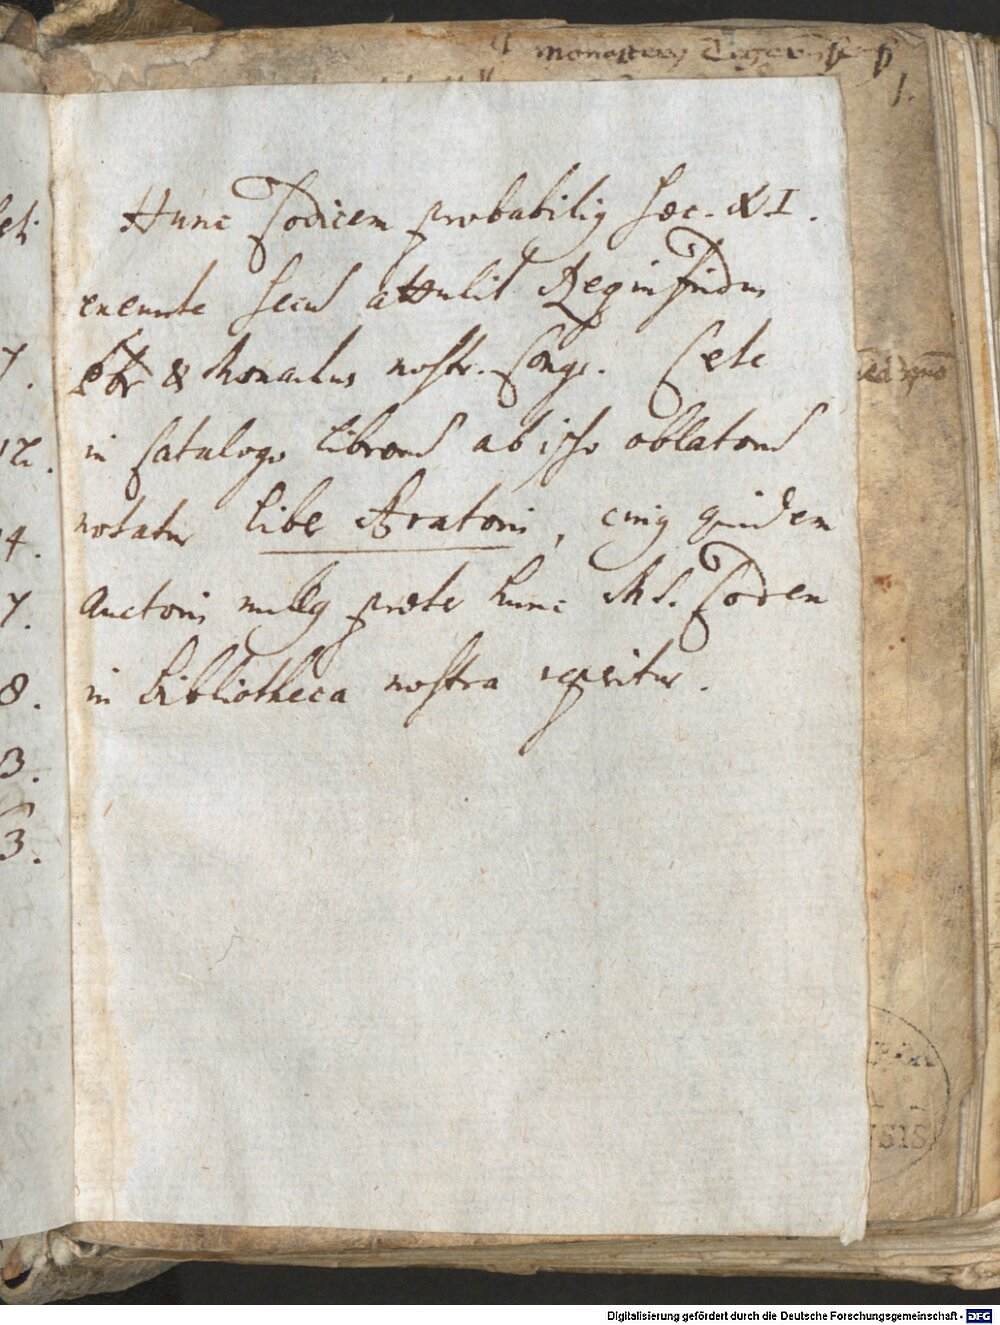 monastery Tegernse
1.
Hunc Codicem probabilig Sec. XI.
exeunte secul attulit Reginfridus
Pbr & Monachus nostr. Congr. Cete
in Catalogo librorum ab ipso oblatorum
notatur Liber Aratoris, cuig quidem
Auctoris nullg præter hunc MS. Codex
in Bibliotheca nostra reperitur.
7.
12.
14.
7.
8.
3.
3.
Digitalisierung gefördert durch die Deutsche Forschungsgemeinschaft - DFG